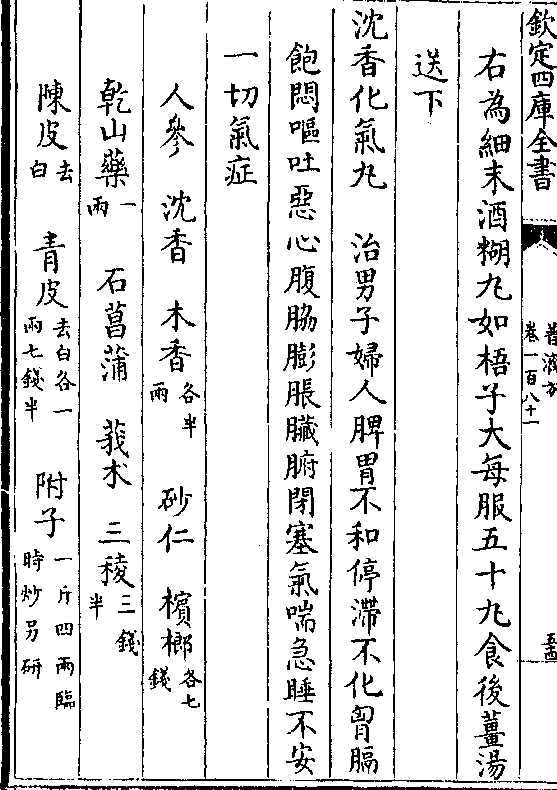 欽定四庫全書
普濟方
卷一百八十一
五十四
右為細末酒糊丸如梧子大每服五十丸食後薑湯
送下
沈香化氣丸 治男子婦人脾胃不和停滯不化胷膈
飽悶嘔吐惡心腹脇膨脹臟腑閉塞氣喘急睡不安
一切氣症
人參 沈香 木香各半兩 砂仁 檳榔各七錢
乾山藥一兩 石菖蒲 莪朮 三稜三錢半
陳皮去白 青皮去白各一兩七錢半 附子一斤四兩臨時炒另研